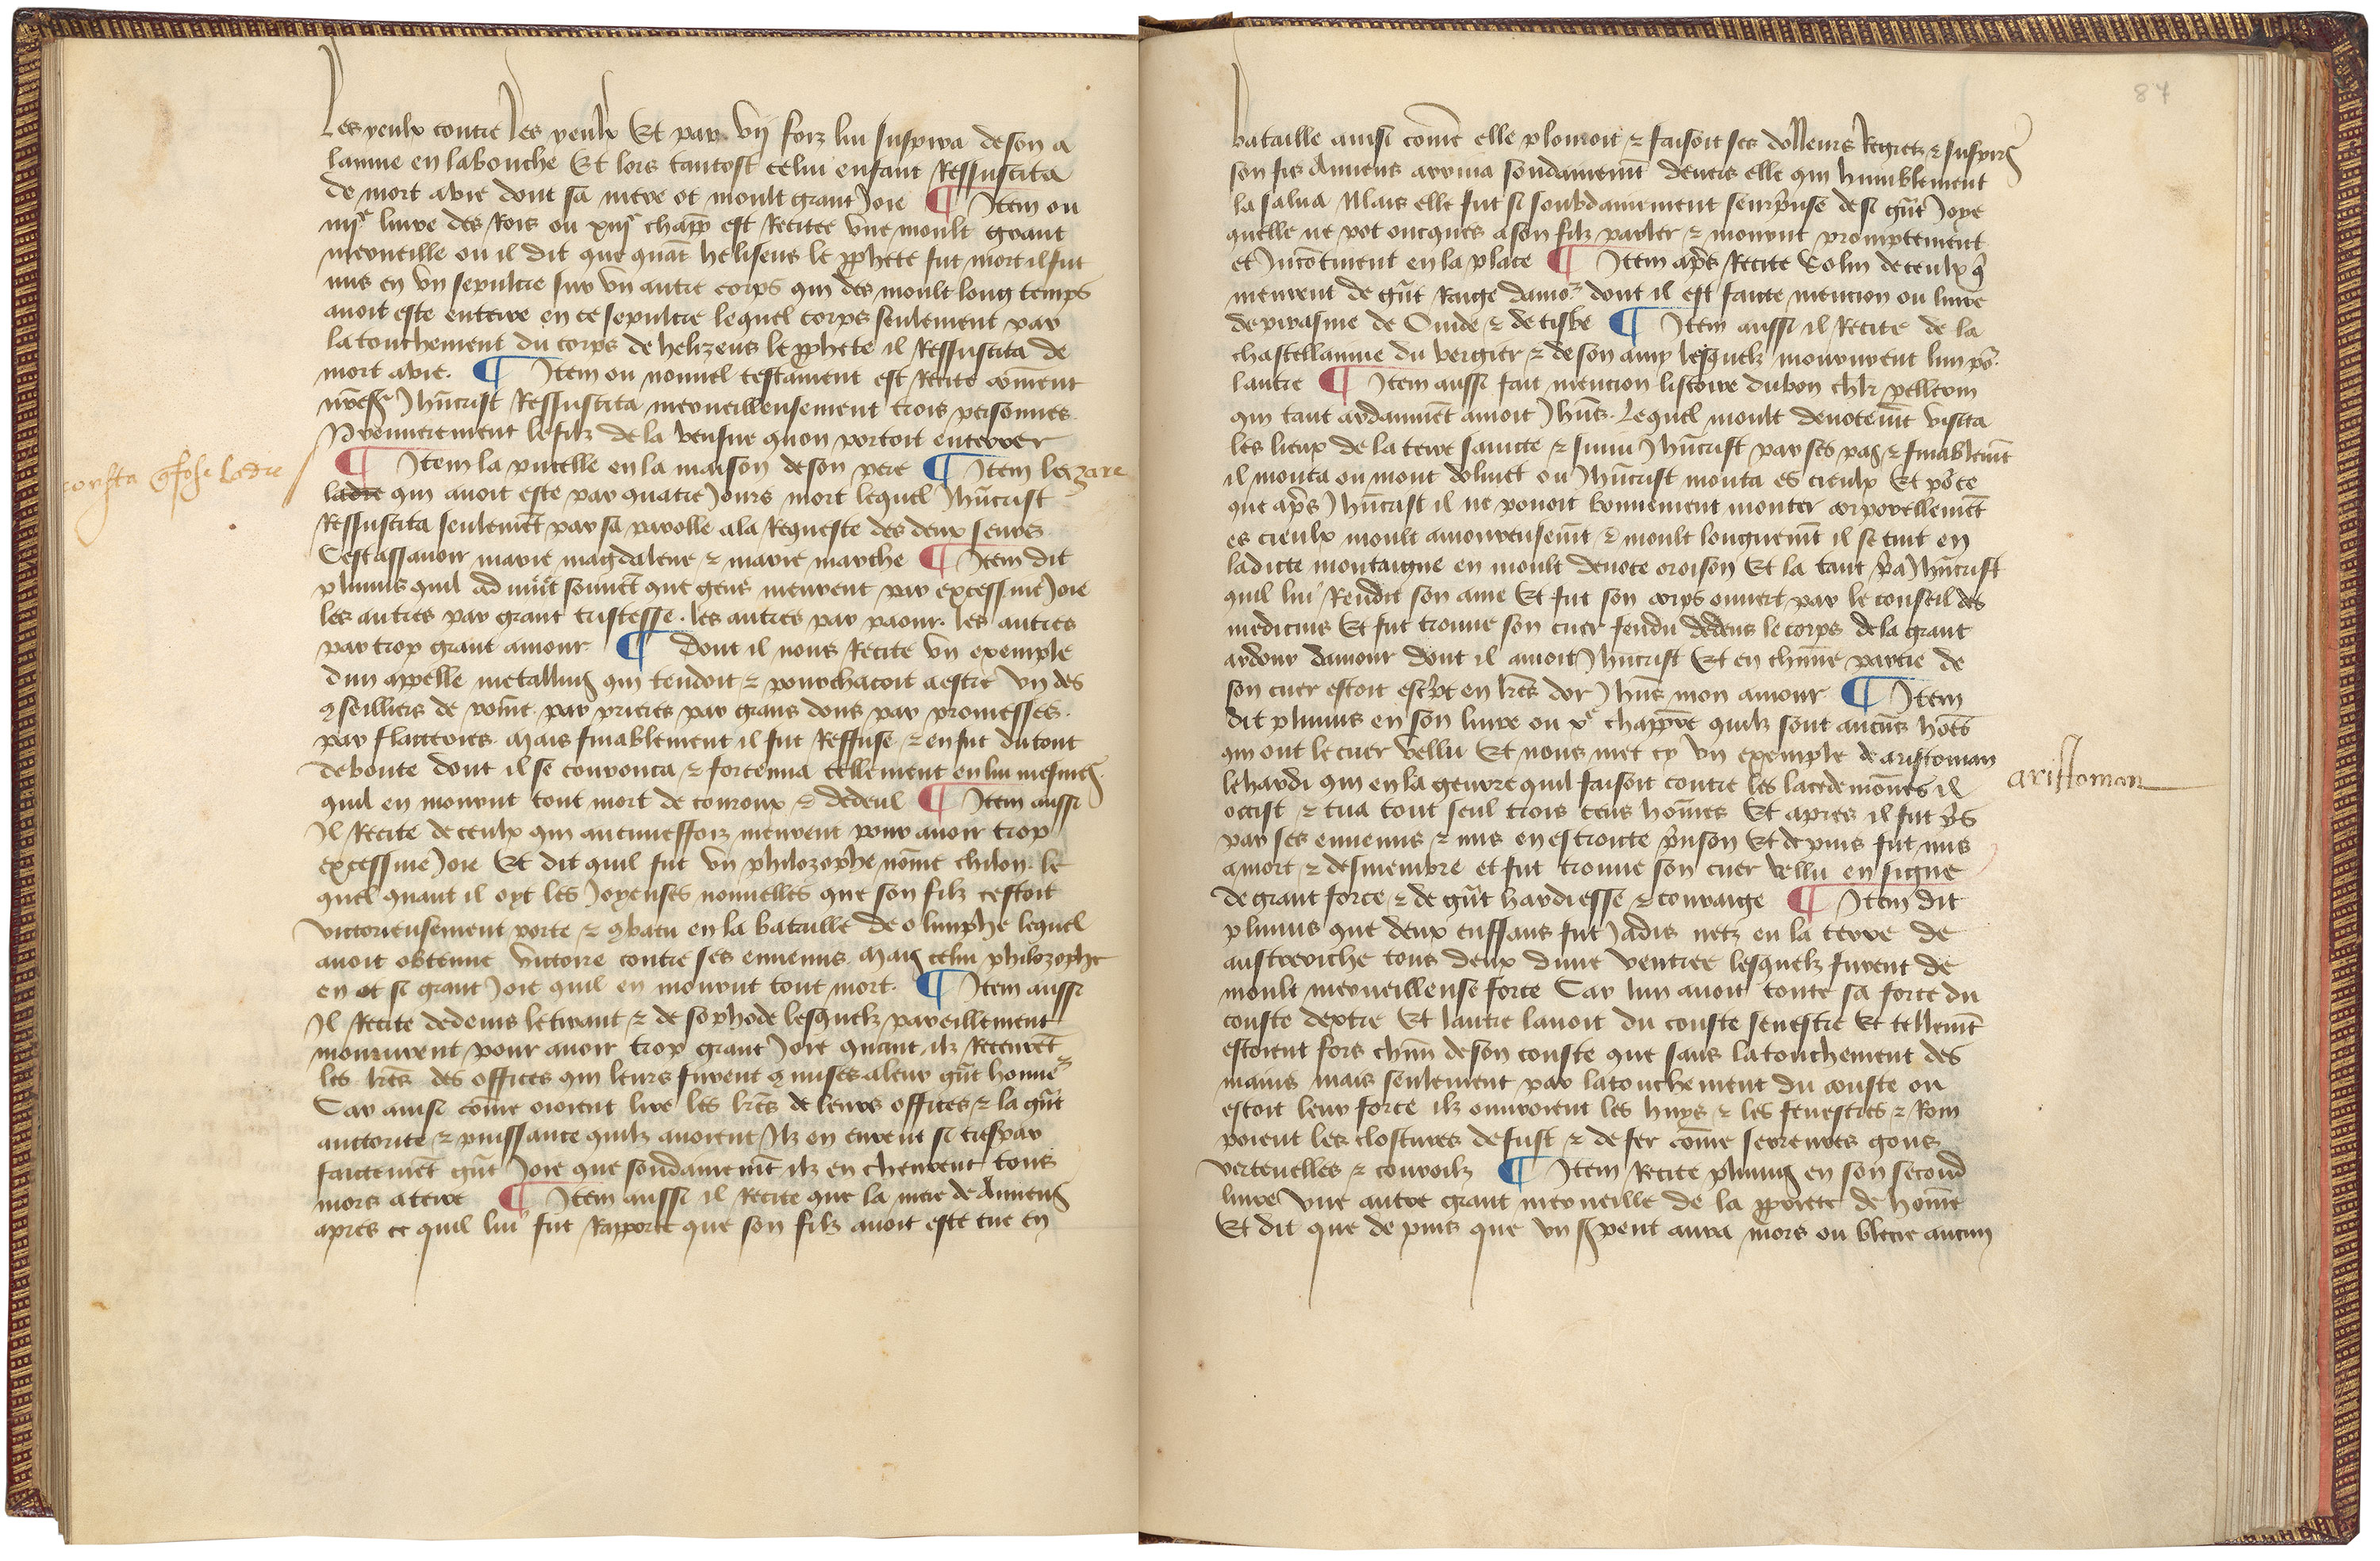 Les yeulx contre les yeulx Et par vij foiz lui suspira de son a
lainne en la bouche Et lors tantost celui enfant Ressuscita
de mort a vie dont sa mere ot moult grant Joie ¶ Item ou
iiijᵉ livre des Rois ou xiijᵉ chapp̄ est Recitee vne moult grant
merueille ou il dit que quāt heliseus le ꝓphete fut mort il fut
mis en vn sepulcre sur vn autre corps qui des moult long temps
auoit este enterre en ce sepulcre lequel corps seulement par
latouchement du corps de helizeus le ꝓphete il Ressuscita de
mort a vie. ¶ Item ou nouuel testament est Recite cōment
nr̄e sʳ Jhūcrist Ressuscita merueilleusement trois personnes
Premierement le filz de la veufue quon portoit enterrer
¶ Item la pucelle en la maison de son pere ¶ Item lazare
ladre qui auoit este par quatre Jours mort lequel Jhūcrist
Ressuscita seulemēt par sa parolle a la Requeste des deux seurs
Cestassauoir marie magdalene ⁊ marie marthe ¶ Item dit
plinius quil aduiēt souuēt que gens meurent par excessiue Joie
les autres par grant tristesse. les autres par paour. les autres
par trop grant amour ¶ Dont il nous Recite vn exemple
dun appelle metallius qui tendoit ⁊ pourchacoit a estre vn des
ꝯseilliers de rōme. par prieres par grans dons par promesses.
par flatteries. mais finablement il fut Reffuse ⁊ en fut du tout
deboute dont il se courouca ⁊ forcenna tellement en lui mesmes
quil en mourut tout mort de couroux ⁊ dedeul ¶ Item aussi
Il Recite de ceulx qui aucuneffoiz meurent pour auoir trop
excessiue Joie Et dit quil fut vn philozophe nōme chilon. le
quel quant il oyt les Joyeuses nouuelles que son filz cestoit
victorieusement porte ⁊ ꝯbatu en la bataille de olimphe lequel
auoit obtenue victoire contre ses ennemis. mais celui philozophe
en ot si grant Joie quil en mourut tout mort. ¶ Item aussi
Il Recite dedenis le tirant ⁊ de sophode lesquelz pareillement
moururent pour auoir trop grant Joie quant ilz Receurēt
les lr̄es des offices qui leurs furent ꝯmises a leur grāt honneʳ
Car ainsi cōme oioient lire les lr̄es de leurs offices ⁊ la grāt
auctorite ⁊ puissance quilz auoient Ilz en eurent si trespar
faictemēt grāt Joie que soudainemēt ilz en cheurent tous
mors a terre ¶ Item aussi il Recite que la mere de Anneus
apres ce quil lui fut Rapporte que son filz auoit este tue en
corsta ꝯfosi Ladre
87
bataille ainsi cōme elle plouroit ⁊ faisoit ses dolleurs Regretz ⁊ suspirs
son fis Anneus arriua soudainemēt deuers elle qui humblement
la salua Mais elle fut si soubdainement seurprise de si grāt Joye
quelle ne pot oncques a son filz parler ⁊ mourut promptement
et Incōtinent en la place ¶ Item apr̄s Recite Solin de ceulx qͥ
meurent de grāt Raige damoʳ dont il est faicte mencion ou liure
de pirasme de Ouide ⁊ de tisbe ¶ Item aussi il Recite de la
chastellainne du vergier ⁊ de son amy lesquelz moururent lun poʳ
lautre ¶ Item aussi fait mencion listoire du bon chlr̄ pellerin
qui tant ardanmēt amoit Jhūs. Lequel moult deuotemēt visita
les lieux de la terre saincte ⁊ suiui Jhūcrist par ses pas ⁊ finablemēt
il monta ou mont doliuet ou Jhūcrist monta es cieulx Et pour ce
que apr̄s Jhūcrist il ne pouoit bonnement monter corporellemēt
es cieulx moult amoureusemēt ⁊ moult longuemēt il se tint en
ladicte montaigne en moult deuote oroison Et la tant pria Jhūcrist
quil lui Rendit son ame Et fut son corps ouuert par le conseil des
medicins Et fut trouue son cuer fendu dedens le corps de la grant
ardour damour dont il amoit Jhūcrist Et en chūne partie de
son cuer estoit escript en lr̄es dor Jhūs mon amour ¶ Item
dit plinius en son liure ou xᵉ chappr̄e quilz sont aucūs hōes
qui ont le cuer vellu Et nous met cy vn exemple de aristoman
le hardi qui en la guerre quil faisoit contre les lacedemōnes il
occist ⁊ tua tout seul trois cens hōmes Et apres il fut pris
par ses ennemis ⁊ mis en estroicte prison Et depuis fut mis
a mort ⁊ desmembre et fut trouue son cuer vellu en signe
de grant force ⁊ de grāt hardiesse ⁊ couraige ¶ Item dit
plinius que deux enffans fut Jadis netz en la terre de
austeriche tous deux dune ventree lesquelz furent de
moult merueilleuse force Car lun auoit toute sa force du
couste dextre Et lautre lauoit du couste senestre Et tellemēt
estoient fors chūn de son couste que sans latouchement des
mains mais seulement par latouchement du couste ou
estoit leur force ilz ouuroient les huys ⁊ les fenestres ⁊ Rom
poient les clostures de fust ⁊ de fer cōme serreures gons
verteuelles ⁊ courroilz ¶ Item Recite plinius en son second
liure vne autre grant merueille de la ꝓpriete de hōme
Et dit que depuis que vn serpent aura mors ou blecie aucun
aristoman